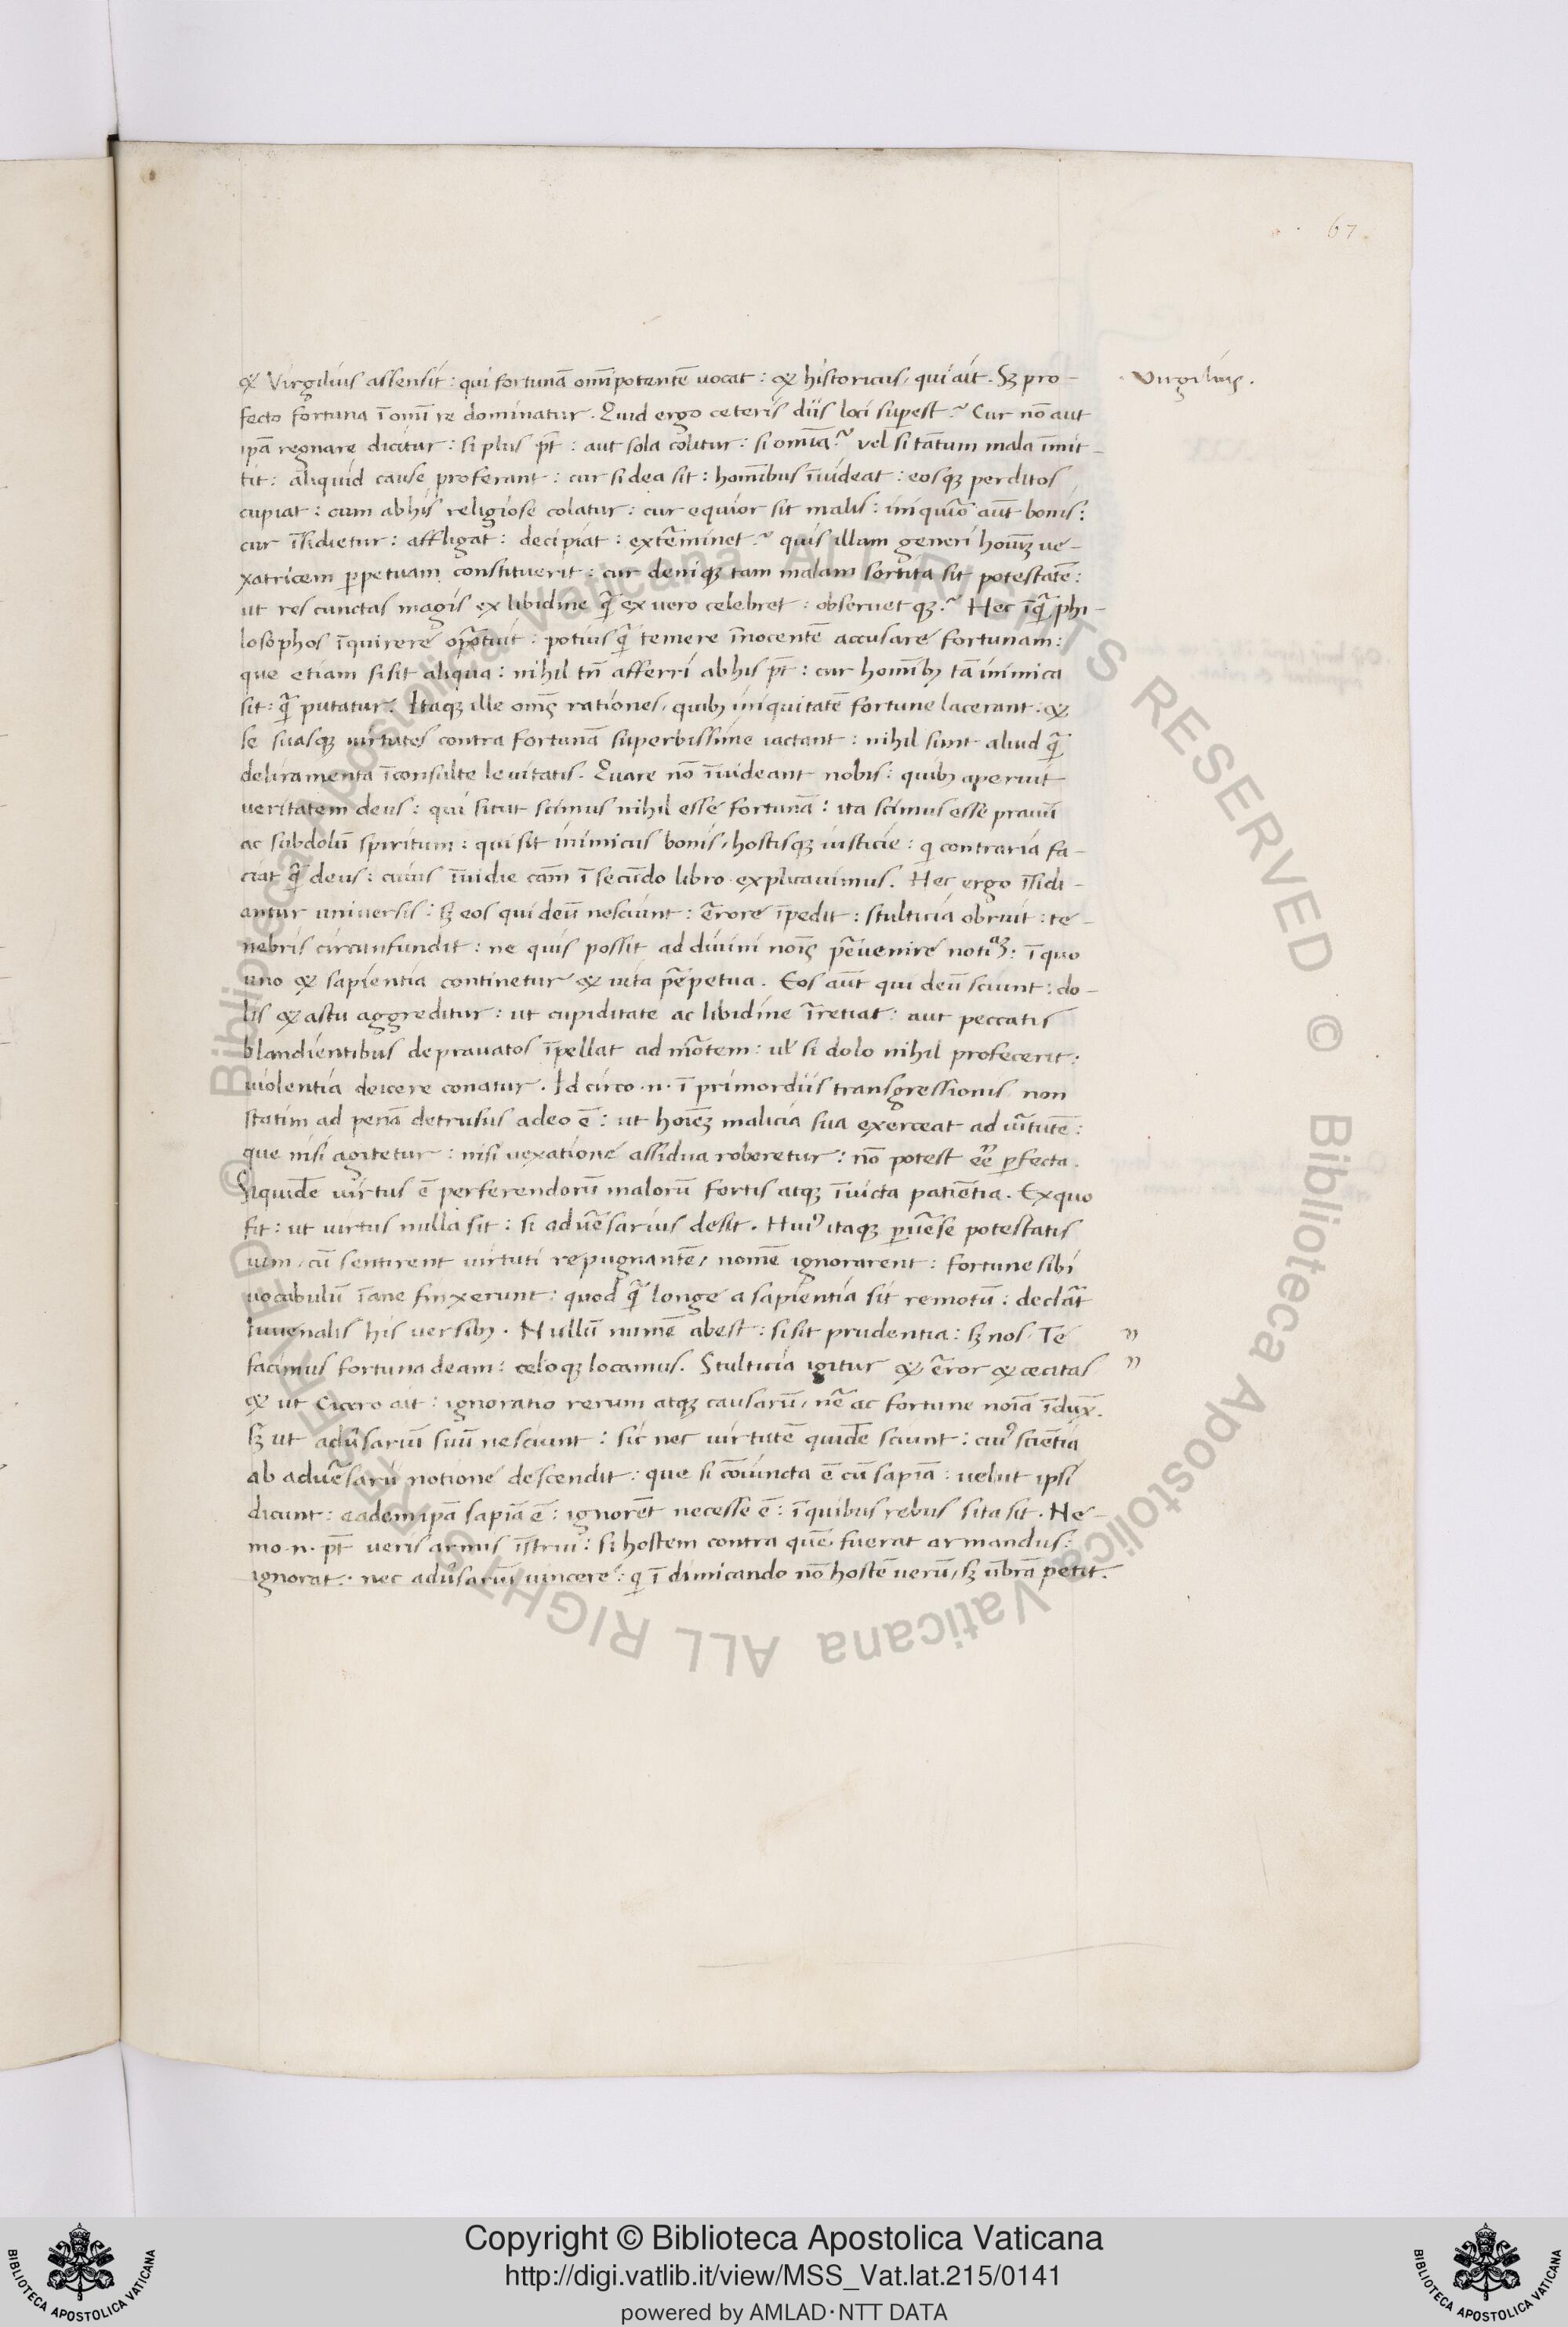 67
& Virgilius assensit : qui fortunā omīpotentē uocat : & historicus, qui ait . Sꝫ pro-
Virgilius.
fecto fortuna ī omī re dominatur . Quid ergo ceteris diis loci supest ? Cur nō aut
ipā regnare dicitur : si plus pt̄ : aut sola colitur : si omīa ? vel si tātum mala īmit-
tit : aliquid cause proferant : cur si dea sit : homībus īuideat : eosqꝫ perditos
cupiat : cum ab his religiose colatur : cur equior sit malis : iniquiō aūt bonis :
cur īsidietur : affligat : decipiat : extēminet ? quis illam generi houīꝫ ue-
xatricem ꝑpetuam constituerit : cur deniqꝫ tam malam sortita sit potestatē :
ut res cunctas magis ex libidine q̄ ex uero celebret : obseruetqꝫ ? Hec īq̄ phi-
losophos īquirere opōtuit : potius q̄ temere īnocentē accusare fortunam :
que etiam si sit aliqua : nihil tn̄ afferri ab his pt̄ : cur homībꝫ tā inimica
sit : q̄ putatur. Itaqꝫ ille om̄s rationes, quibꝫ iniquitatē fortune lacerant : &
se suasqꝫ uirtutes contra fortunā superbissime iactant : nihil sunt aliud q̄
deliramenta īconsulte leuitatis . Quare nō īuideant nobis : quibꝫ aperuit
veritatem deus : qui sicut scimus nihil esse fortunā : ita scimus esse prauū
ac subdolū spiritum : qui sit inimicus bonis, hostisqꝫ iusticie : q contraria fa-
ciat q̄ deus : cuius īuidie cām ī secūdo libro explicauimus . Hec ergo īsidi-
antur uniuersis : sꝫ eos qui deū nesciunt : ērore īpedit : stulticia obruit : te-
nebris circunfundit : ne quis possit ad diuini noīs pēuenire notiaꝫ : ī quo
uno & sapientia continetur & uita pēpetua . Eos aūt qui deū sciunt : do-
lis & astu aggreditur : ut cupiditate ac libidine īretiat : aut peccatis
blandientibus deprauatos īpellat ad mōtem : ul̄ si dolo nihil profecerit :
uiolentia deicere conatur . Idcirco .n. ī primordiis transgressionis non
statim ad penā detrusus a deo ē : ut hoīeꝫ malicia sua exerceat ad uītutē :
que nisi agitetur : nisi uexatione assidua roboretur : nō potest eē̄ ꝑfecta .
Siquidē uirtus ē perferendorū malorū fortis atqꝫ īuicta patiētia . Ex quo
fit : ut uirtus nulla sit : si aduēsarius desit . Huiꝰ itaqꝫ ꝑuēse potestatis
uim, cū sentirent uirtuti repugnantē, nomē ignorarent : fortune sibi
uocabulū īane finxerunt : quod q̄ longe a sapientia sit remotū : declāt
Iuuenalis his uersibꝫ . Nullū numē abest : si sit prudentia : sꝫ nos Te
facimus fortuna deam : celoqꝫ locamus . Stulticia igitur & ēror & cecitas
& ut Cicero ait : ignoratio rerum atqꝫ causarū, nē ac fortune noīa īdux̄ .
sꝫ ut adūsariū suū nesciunt : sic nec uirtutē quidē sciunt : cuiꝰ sciētia
ab aduēsarii notione descendit : que si cōiuncta ē cū sapīa : uelut ipsi
dicunt : eadem ipā sapīa ē : ignorēt necesse ē : ī quibus rebus sita sit . Ne-
mo .n. pt̄ ueris armis īstrui : si hostem contra quē fuerat armandus :
ignorat . nec adūsariū uincere : q ī dimicando nō hostē uerū, sꝫ ūbrā petit .
Copyright © Biblioteca Apostolica Vaticana
http://digi.vatlib.it/view/MSS_Vat.lat.215/0141
powered by AMLAD·NTT DATA